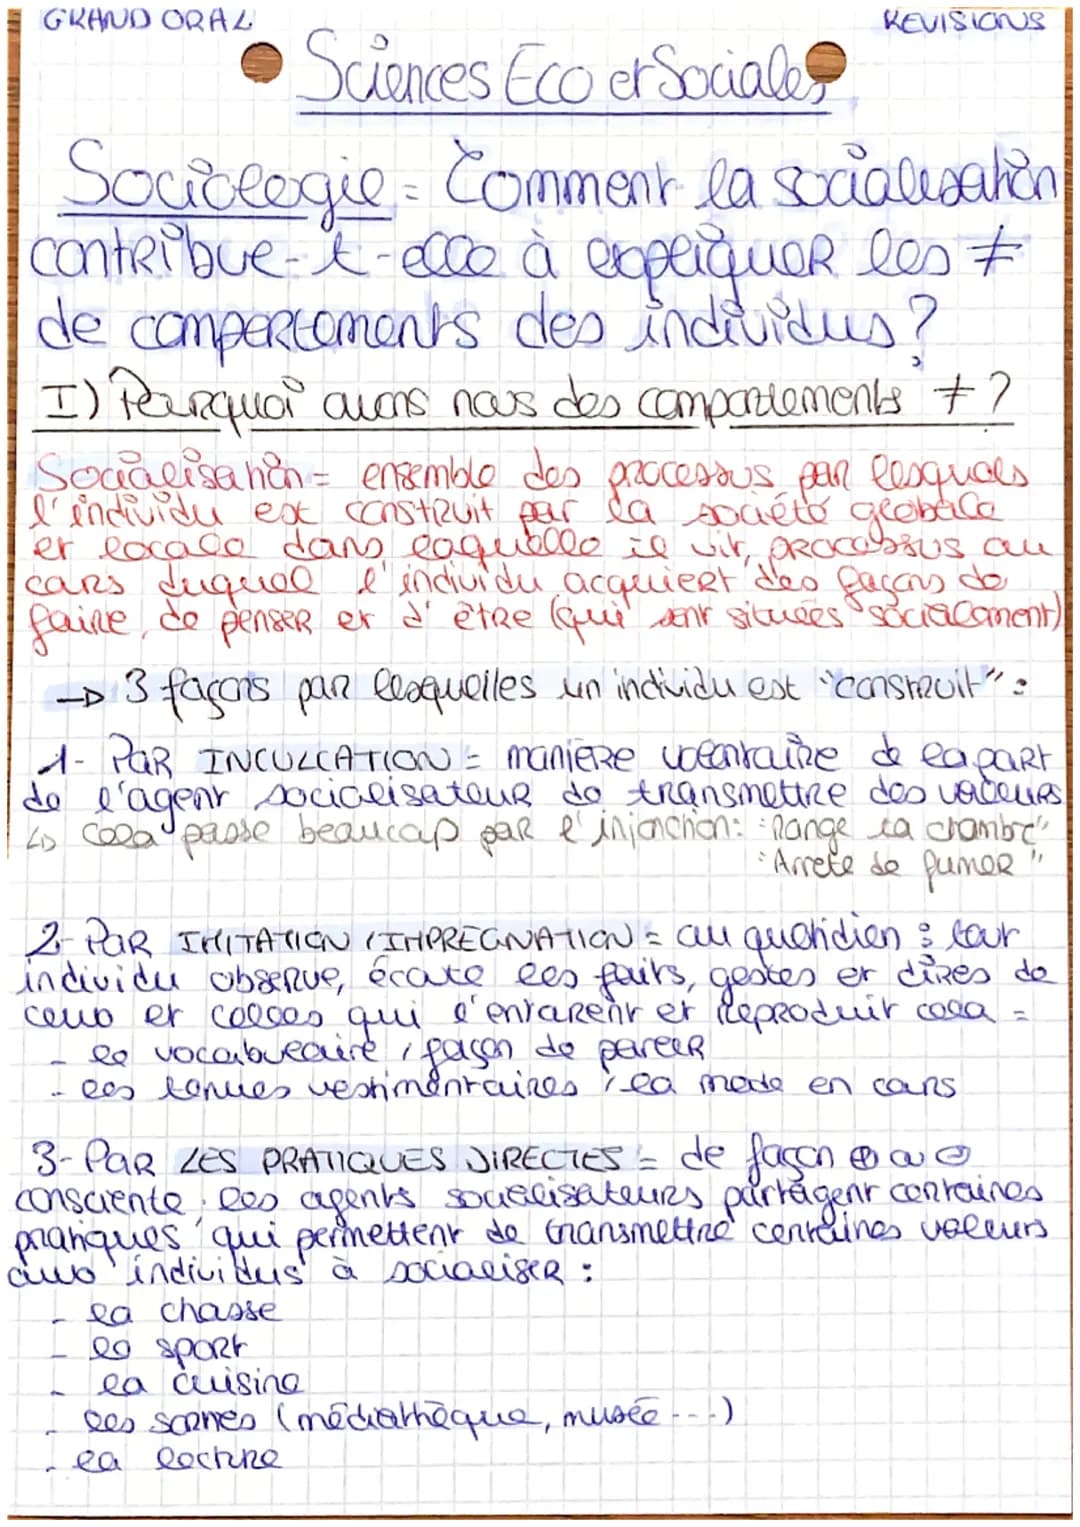 GRAND ORAL
REVISIONS
Sciences Eco et Sociales
Sociologie = Comment la socialisation
contribue-t-elle à expliquer les ≠
de comportements des individus ?
I) Pourquoi avons nous des comportements ≠ ?
Socialisation = ensemble des processus par lesquels
l'individu est construit par la société globale
et locale dans laquelle il vit, processus au
cours duquel l'individu acquiert des façons de
faire, de penser et d'être (qui sont situées socialement)
→ 3 façons par lesquelles un individu est "construit" :
1- PAR INCULCATION = manière volontaire de la part
de l'agent socialisateur de transmettre des valeurs
↳ Cela passe beaucoup par l'injonction : "Range ta chambre"
"Arrete de fumer"
2- PAR IMITATION / IMPREGNATION = au quotidien : tout
individu observe, écoute les faits, gestes et dires de
ceux et celles qui l'entourent et reproduit cela =
- le vocabulaire, façon de parler
- les tenues vestimentaires, la mode en cours
3- PAR LES PRATIQUES DIRECTES = de façon ⊕ ou ⊖
consciente. les agents socialisateurs partagent certaines
pratiques qui permettent de transmettre certaines valeurs
aux individus à socialiser :
- la chasse
- le sport
- la cuisine
- les sorties (médiathèque, musée ...)
- la lecture